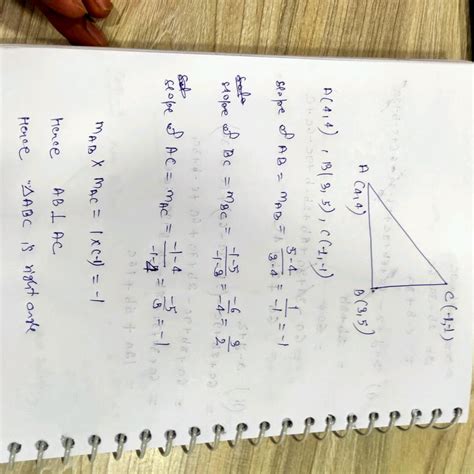 C(-1,-1)
A (4,4)
B(3,5)
A(4,4) , B(3,5), C(-1,-1)
slope of AB = m_AB = (5-4)/(3-4) = 1/-1 = -1
slope of BC = m_BC = (-1-5)/(-1-3) = -6/-4 = 3/2
slope of AC = m_AC = (-1-4)/(-1-4) = = 1
m_AB × m_AC = 1×(-1) = -1
Hence AB ⊥ AC
Hence △ABC is right angle